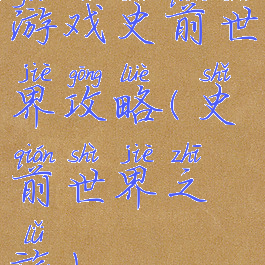 游戏史前世
jiè gōng lüè shǐ
界攻略(史
qián shì jiè zhī
前世界之
lǚ